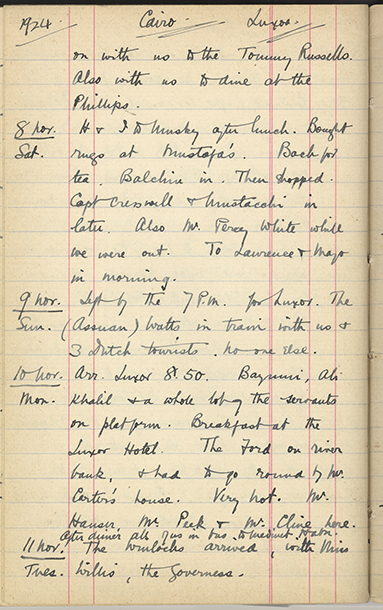 1924 Cairo. Luxor.
on with us to the Tommy Russells.
Also with us to dine at the
Phillips.
8 Nov. H & I to Musky after lunch. Bought
Sat. rugs at Mustafa's. Back for
tea. Balchin in. Then shopped.
Capt Creswell & Mustacchi in
later. Also Mr. Percy White while
we were out. To Lawrence & Mayo
in morning.
9 Nov. Left by the 7 P.M. for Luxor. The
Sun. (Assuan) Watts in train with us &
3 Dutch tourists. No one else.
10 Nov. Arr. Luxor 8.50. Bayumi, Ali
Mon. Khalil & a whole lot of the servants
on platform. Breakfast at the
Luxor Hotel. The Ford on river
bank, & had to go round by Mr.
Carter's house. Very hot. Mr.
Hauser, Mr. Peck & Mr. Cline here.
After dinner all of us in bus to Medinet Habu.
11 Nov. The Winlocks arrived, with Miss
Tues. Willis, the governess.